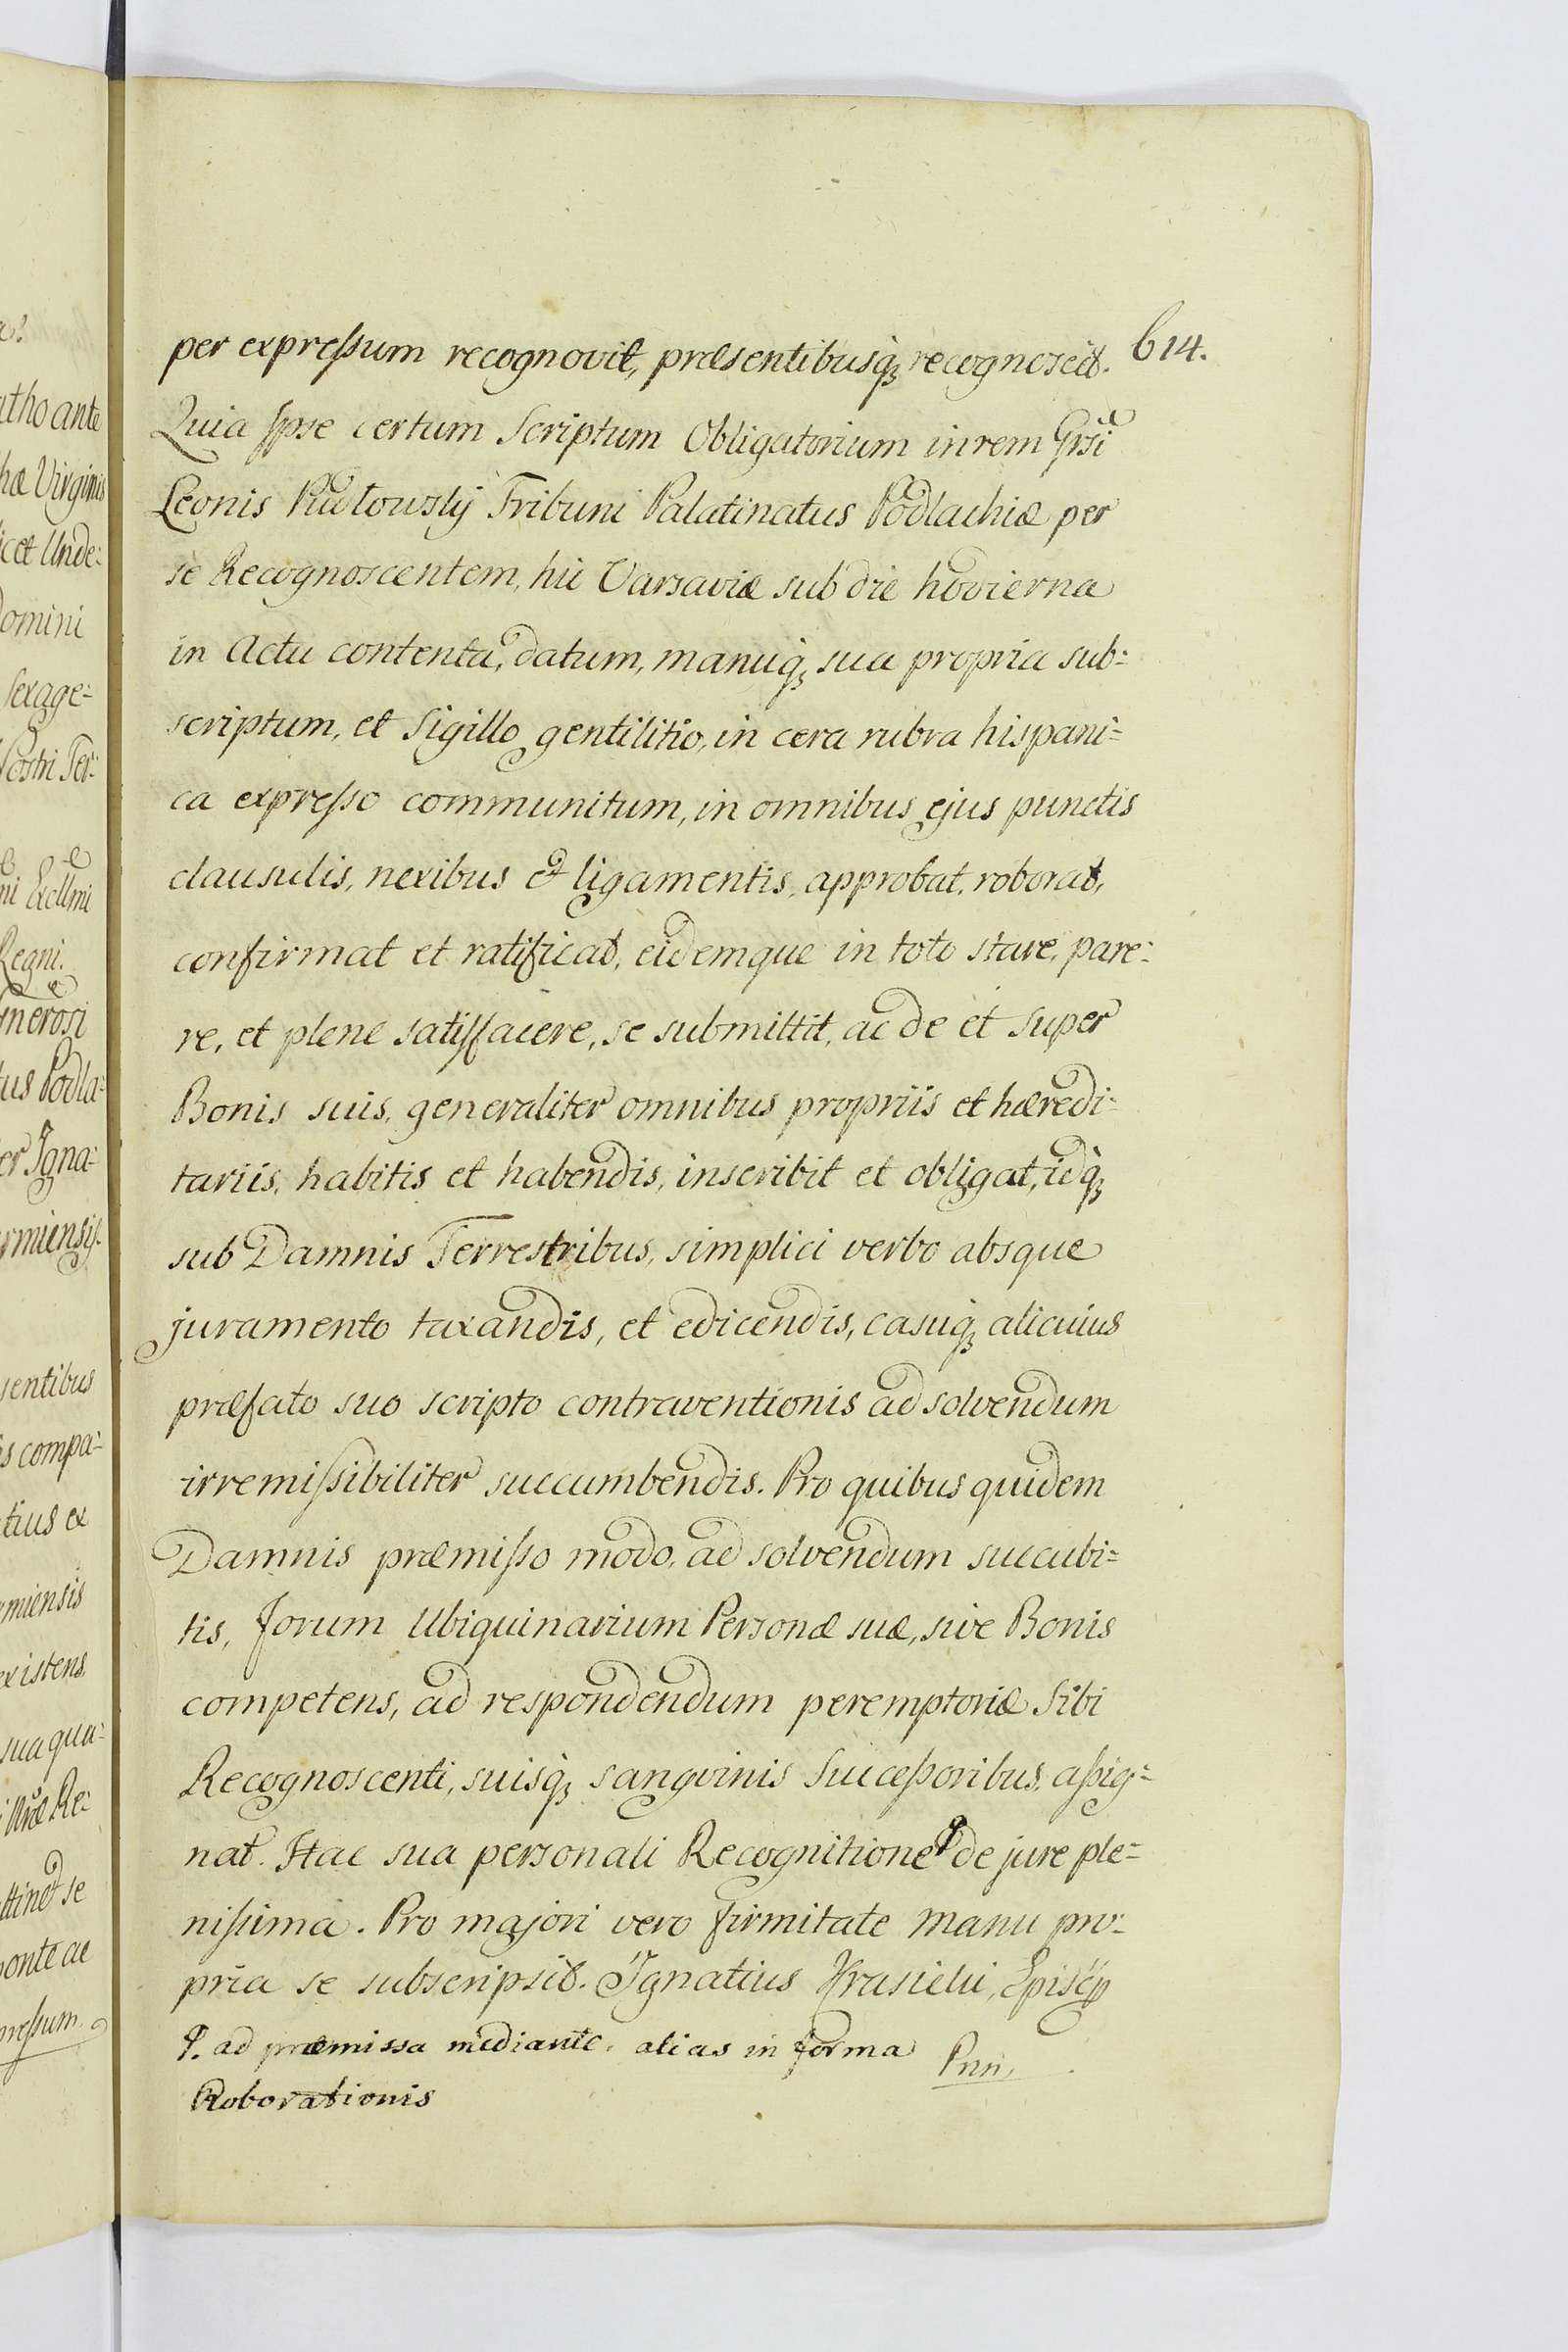 614.
per expressum recognovit, præsentibusq; recognoscit.
Quia Ipse certum Scriptum Obligatorium in rem Grsi
Leonis Pudłowskÿ Tribuni Palatinatus Podlachiæ per
se Recognoscentem, hic Varsaviæ sub die hodierna
in Actu contenta, datum, manuq; sua propria sub=
scriptum, et Sigillo gentilitio, in cera rubra hispani=
ca expresso communitum, in omnibus ejus punctis
clausulis, nexibus et ligamentis, approbat, roborat,
confirmat et ratificat, eidemque in toto stare, pare=
re, et plene satisfacere, se submittit, ac de et super
Bonis suis, generaliter omnibus propriis et hæredi=
tariis, habitis et habendis, inscribit et obligat, idq;
sub Damnis Terrestribus, simplici verbo absque
juramento taxandis, et edicendis, casuq; alicuius
præfato suo scripto contraventionis ad solvendum
irremissibiliter succumbendis. Pro quibus quidem
Damnis præmisso modo, ad solvendum succubi=
tis, forum Ubiquinarium Personæ suæ, sive Bonis
competens, ad respondendum peremptorie Sibi
Recognoscenti, suisq; sangvinis Successoribus, assig=
nat. Hac sua personali Recognitione de jure ple=
nissima. Pro majori vero firmitate manu pro=
pria se subscripsit. Ignatius Krasicki, Episcp
ad præmissa mediante, alias in forma
Roborationis